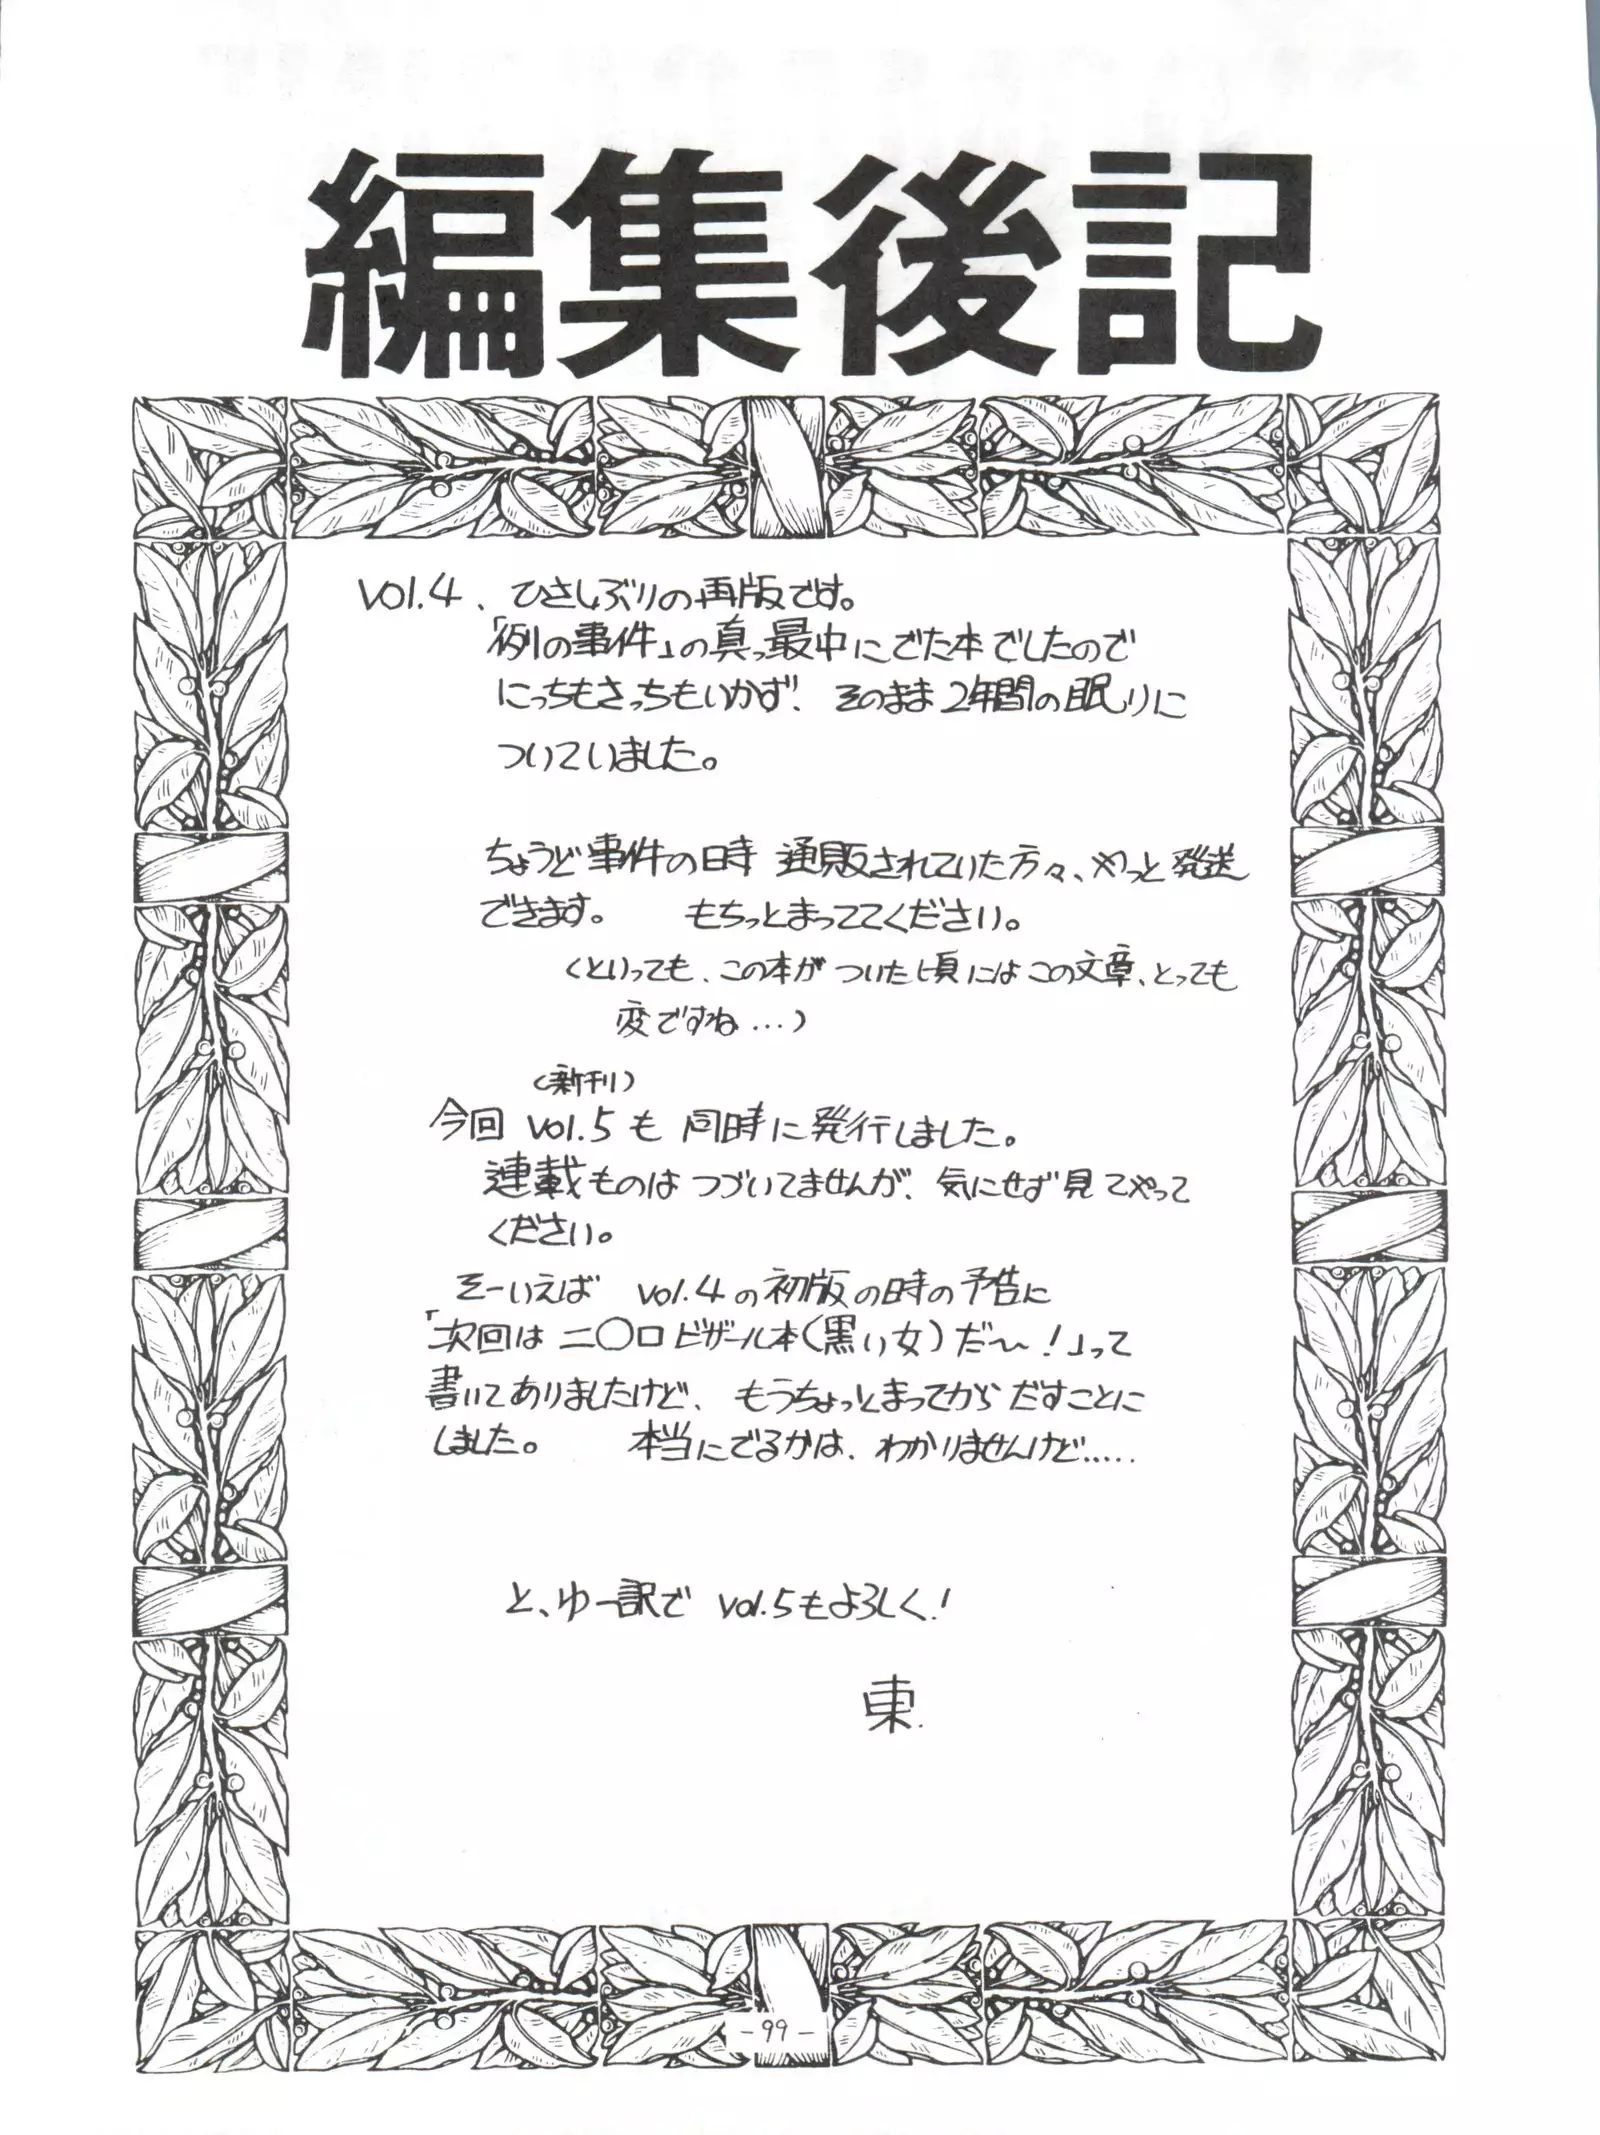 編集後記
vol.4、ひさしぶりの再版です。
「例の事件」の真っ最中にでた本でしたので
にっちもさっちもいかず！そのまま2年間の眠りに
ついていました。
ちょうど事件の時 通販されていた方々、やっと発送
できます。 もちっとまっててください。
(といっても、この本が ついた頃にはこの文章、とっても
変ですね...)
(新刊)
今回 vol.5も 同時に発行しました。
連載ものは つづいてませんが、気にせず見てやって
ください。
そーいえば vol.4の初版の時の予告に
「次回は 二〇ロ ビザール本(黒い女)だ〜！」って
書いてありましたけど、もうちょっとまってから だすことに
しました。 本当にでるかは、わかりませんけど.....
と、ゆー訳で vol.5もよろしく！
東.
- 99 -